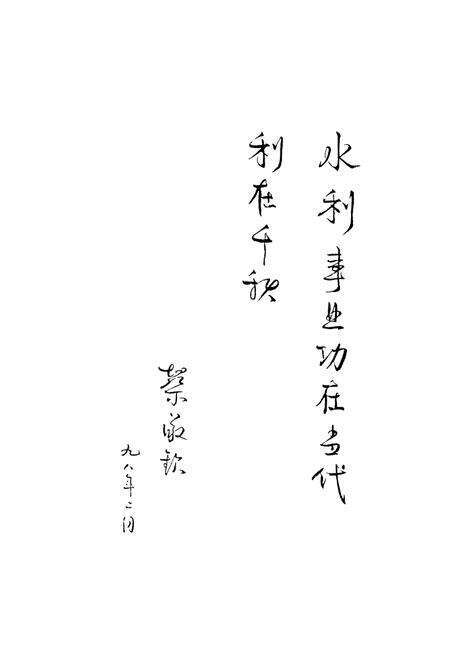 水利事业功在当代
利在千秋
蔡敬钦
九八年二月